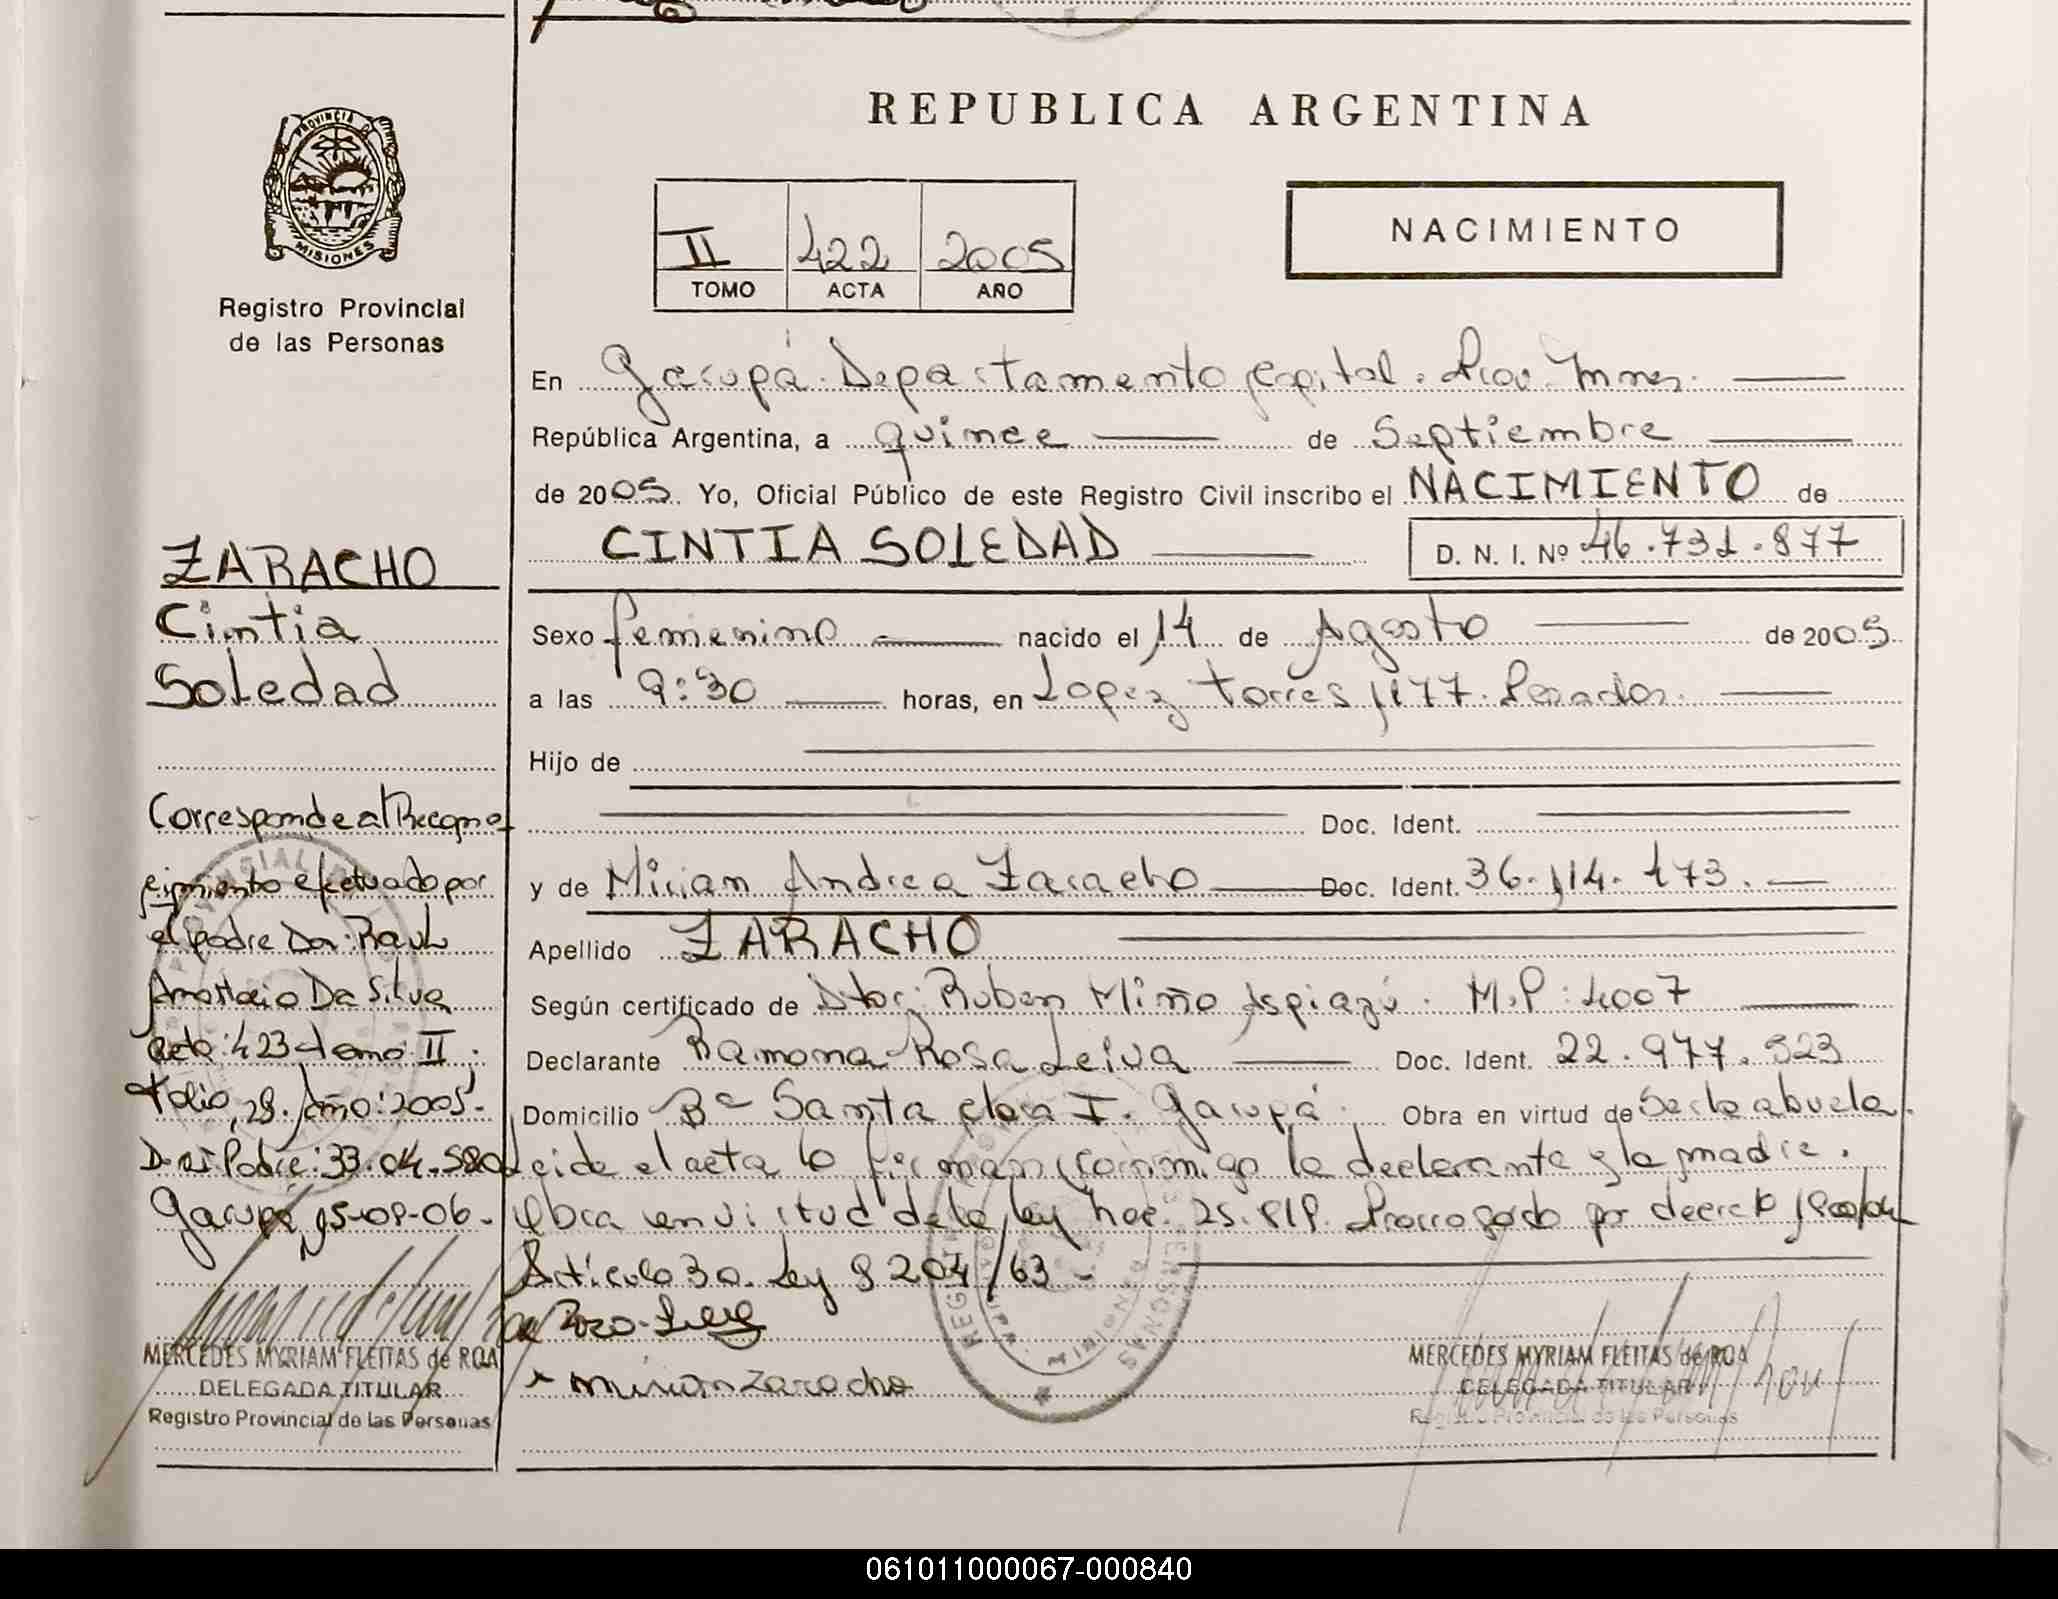 REPUBLICA ARGENTINA
PROVINCIA DE
MISIONES
Registro Provincial
de las Personas
II 422 2005
TOMO ACTA AÑO
NACIMIENTO
En Garupá Departamento Capital. Prov. Mnes.
República Argentina, a quince de Septiembre
de 2005. Yo, Oficial Público de este Registro Civil inscribo el NACIMIENTO de
CINTIA SOLEDAD D. N. I. Nº 46.731.877
Sexo femenino nacido el 14 de Agosto de 2005
a las 9:30 horas, en Lopez Torres 1177. Posadas.
Hijo de
Doc. Ident.
y de Mirian Andrea Zaracho Doc. Ident. 36.114.173.
Apellido ZARACHO
Según certificado de Dtor: Ruben Miño Aspiazú. M.P: 4007
Declarante Ramona Rosa Leiva Doc. Ident. 22.977.323
Domicilio Bº Santa Clara I. Garupá. Obra en virtud de Ser la abuela.
Leida el acta la firman conmigo la declarante y la madre.
Obra en virtud de la ley Nac. 25.819. Prorrogado por decreto
Articulo 30. Ley 8204/63
Mirian Zaracho
MERCEDES MYRIAM FLEITAS de ROA
DELEGADA TITULAR
Registro Provincial de las Personas
ZARACHO
Cintia
Soledad
Corresponde al Recono
cimiento efectuado por
el padre Don: Raul
Anastacio Da Silva
acta: 423 tomo: II.
Folio, 28. Año: 2005.
Padre: 33.
Garupá, 15-09-06.
MERCEDES MYRIAM FLEITAS de ROA
DELEGADA TITULAR
Registro Provincial de las Personas
061011000067-000840